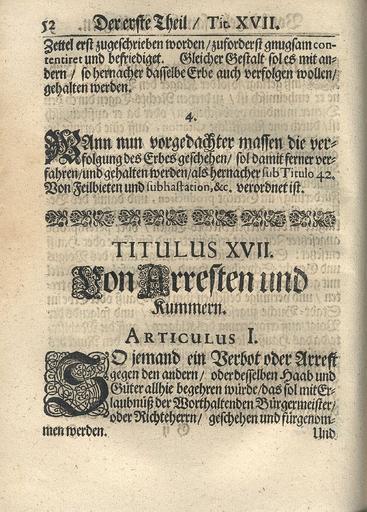 52 Der erste Theil / Tit. XVII.
Zettel erst zugeschrieben worden / zuforderst gnugsam con-
tentiret und befriediget. Gleicher Gestalt sol es mit an-
dern / so hernacher dasselbe Erbe auch verfolgen wollen /
gehalten werden.
4.
WAnn nun vorgedachter massen die ver-
folgung des Erbes geschehen / sol damit ferner ver-
fahren / und gehalten werden / als hernacher sub Titulo 42.
Von Feilbieten und subhastation, &c. verordnet ist.
TITULUS XVII.
Von Arresten und
Kummern.
ARTICULUS I.
SO jemand ein Verbot oder Arrest
gegen den andern / oder desselben Haab und
Güter allhie begehren würde / das sol mit Er-
laubnüß der Worthaltenden Bürgermeister /
oder Richteherrn / geschehen und fürgenom-
men werden.
Und